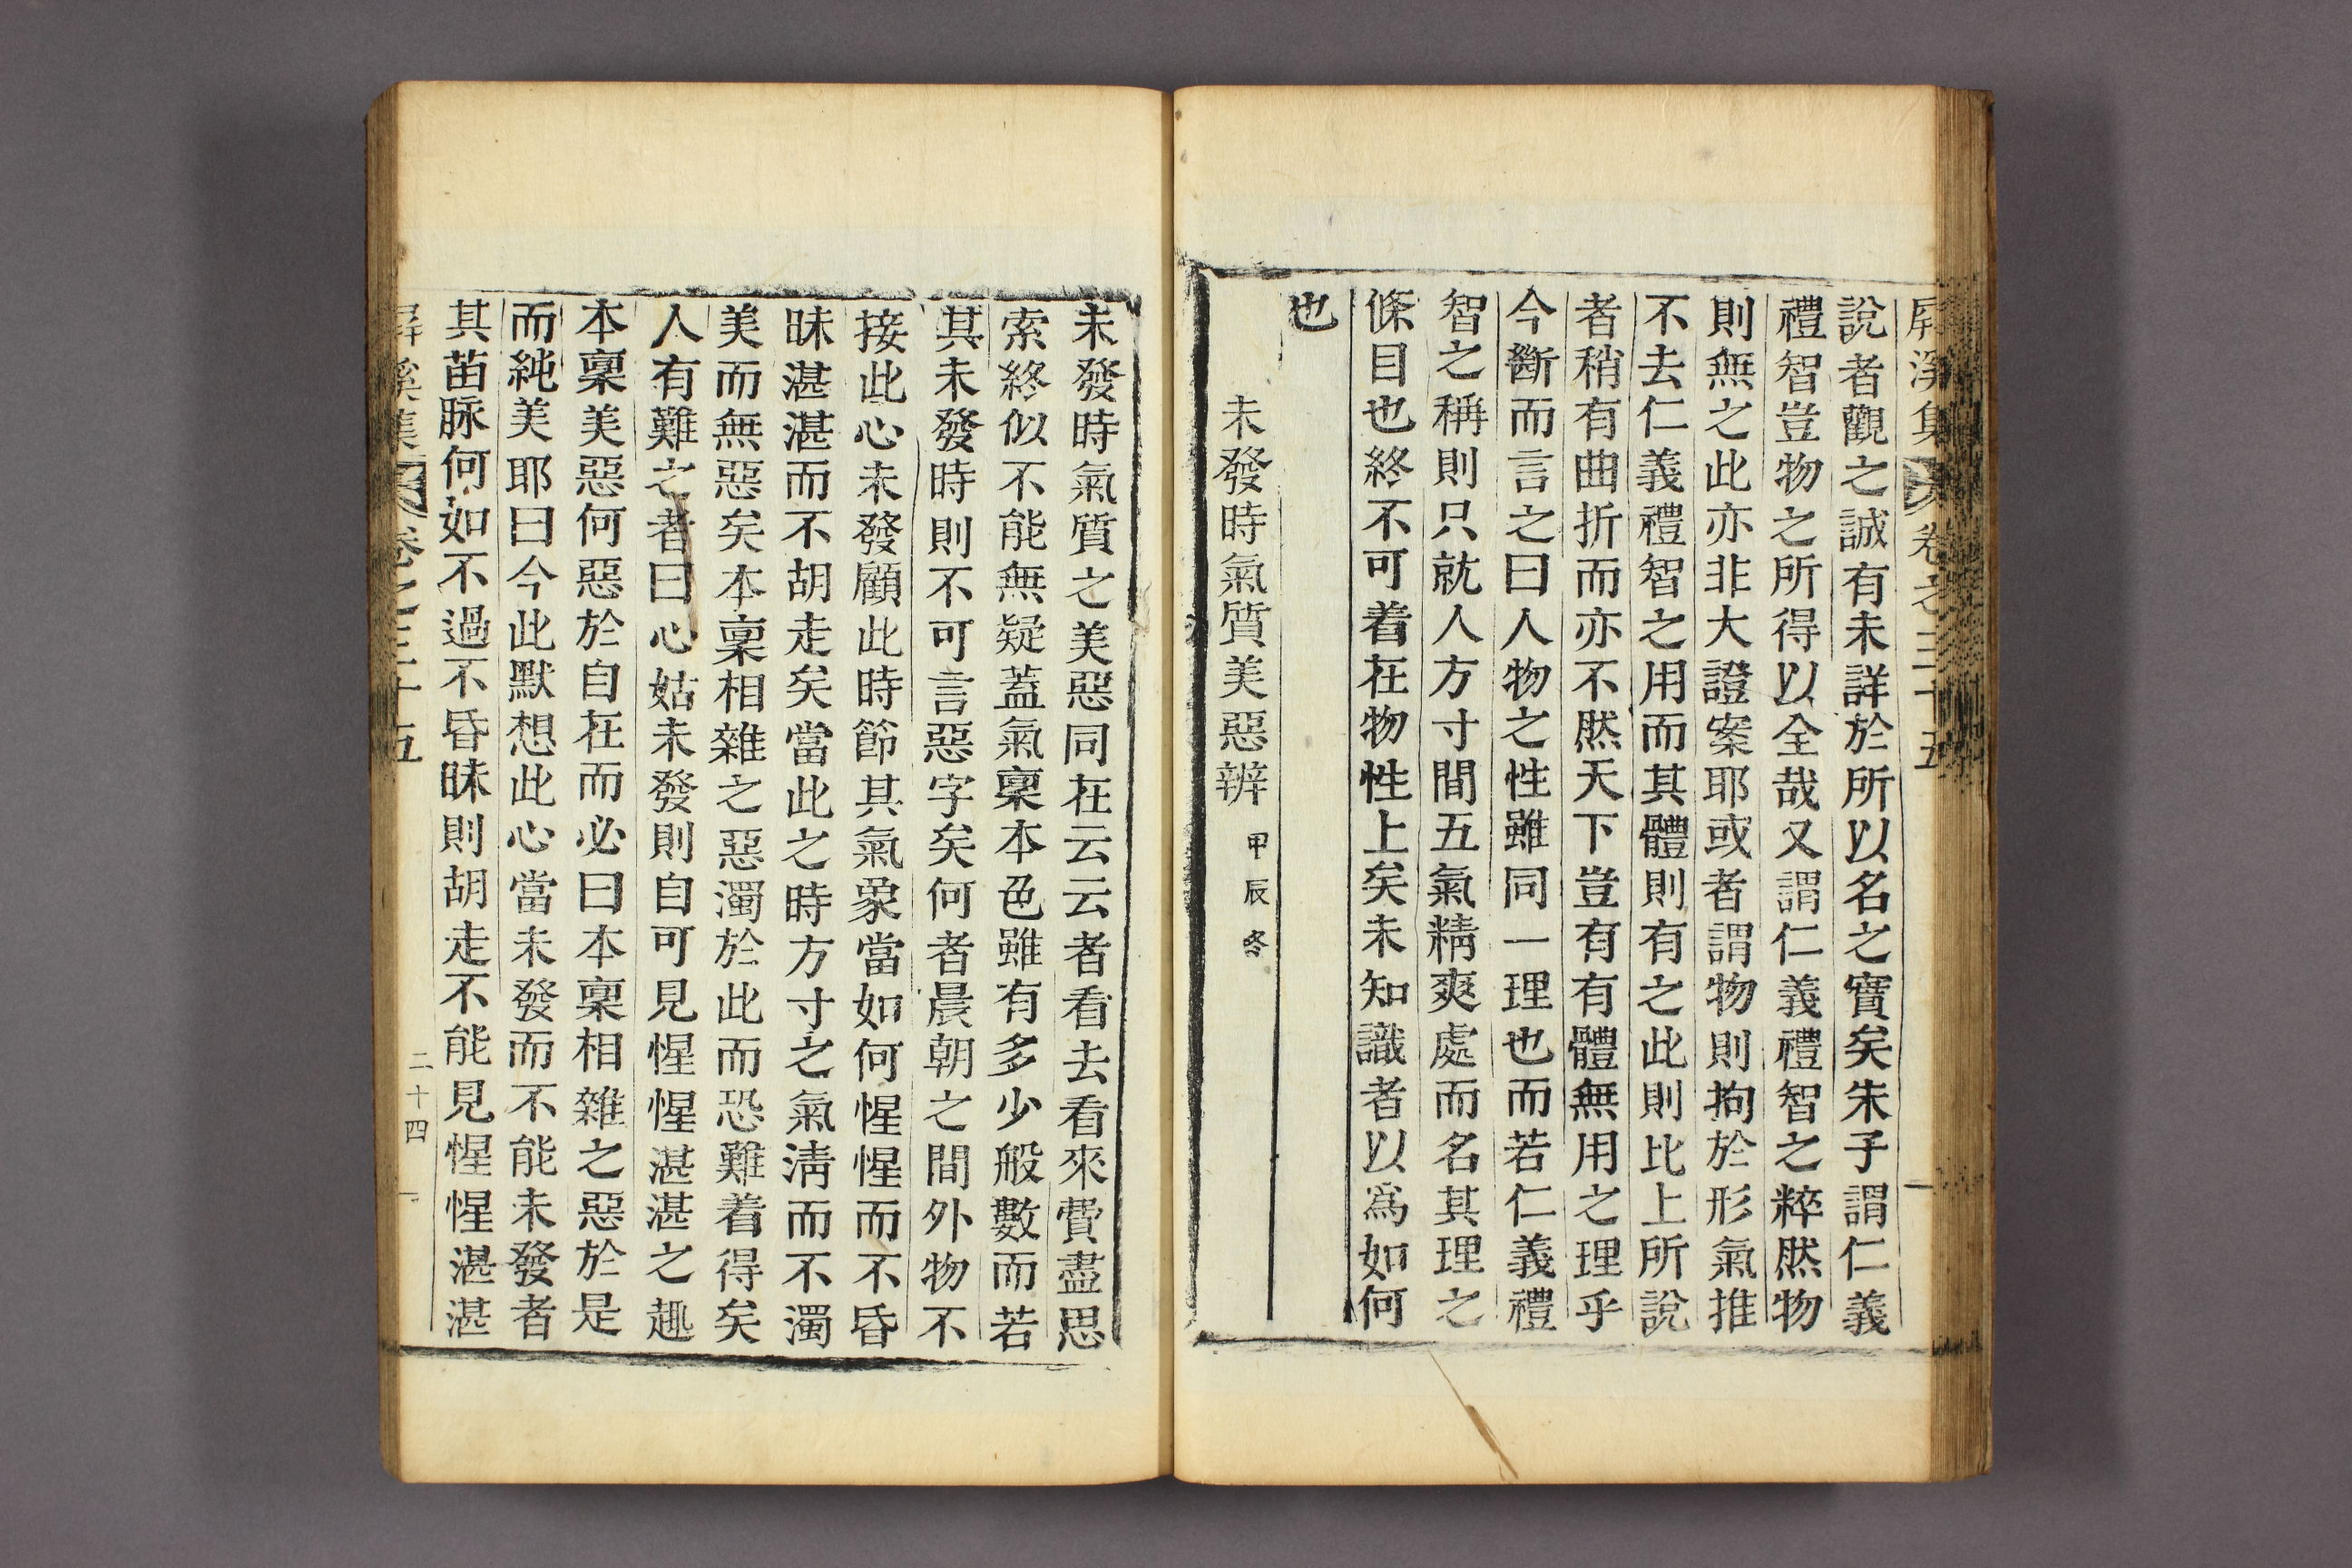 屛溪集 卷之三十五
說者觀之誠有未詳於所以名之實矣朱子謂仁義
禮智豈物之所得以全哉又謂仁義禮智之粹然物
則無之此亦非大證案耶或者謂物則拘於形氣推
不去仁義禮智之用而其體則有之此則比上所說
者稍有曲折而亦不然天下豈有有體無用之理乎
今斷而言之曰人物之性雖同一理也而若仁義禮
智之稱則只就人方寸間五氣精爽處而名其理之
條目也終不可着在物性上矣未知識者以爲如何
也
未發時氣質美惡辨 甲辰冬
未發時氣質之美惡同在云云者看去看來費盡思
索終似不能無疑蓋氣稟本色雖有多少般數而若
其未發時則不可言惡字矣何者晨朝之間外物不
接此心未發顧此時節其氣象當如何惺惺而不昏
昧湛湛而不胡走矣當此之時方寸之氣淸而不濁
美而無惡矣本稟相雜之惡濁於此而恐難着得矣
人有難之者曰心姑未發則自可見惺惺湛湛之趣
本稟美惡何惡於自在而必曰本稟相雜之惡於是
而純美耶曰今此默想此心當未發而不能未發者
其苗脉何如不過不昏昧則胡走不能見惺惺湛湛
屛溪集 卷之三十五 二十四